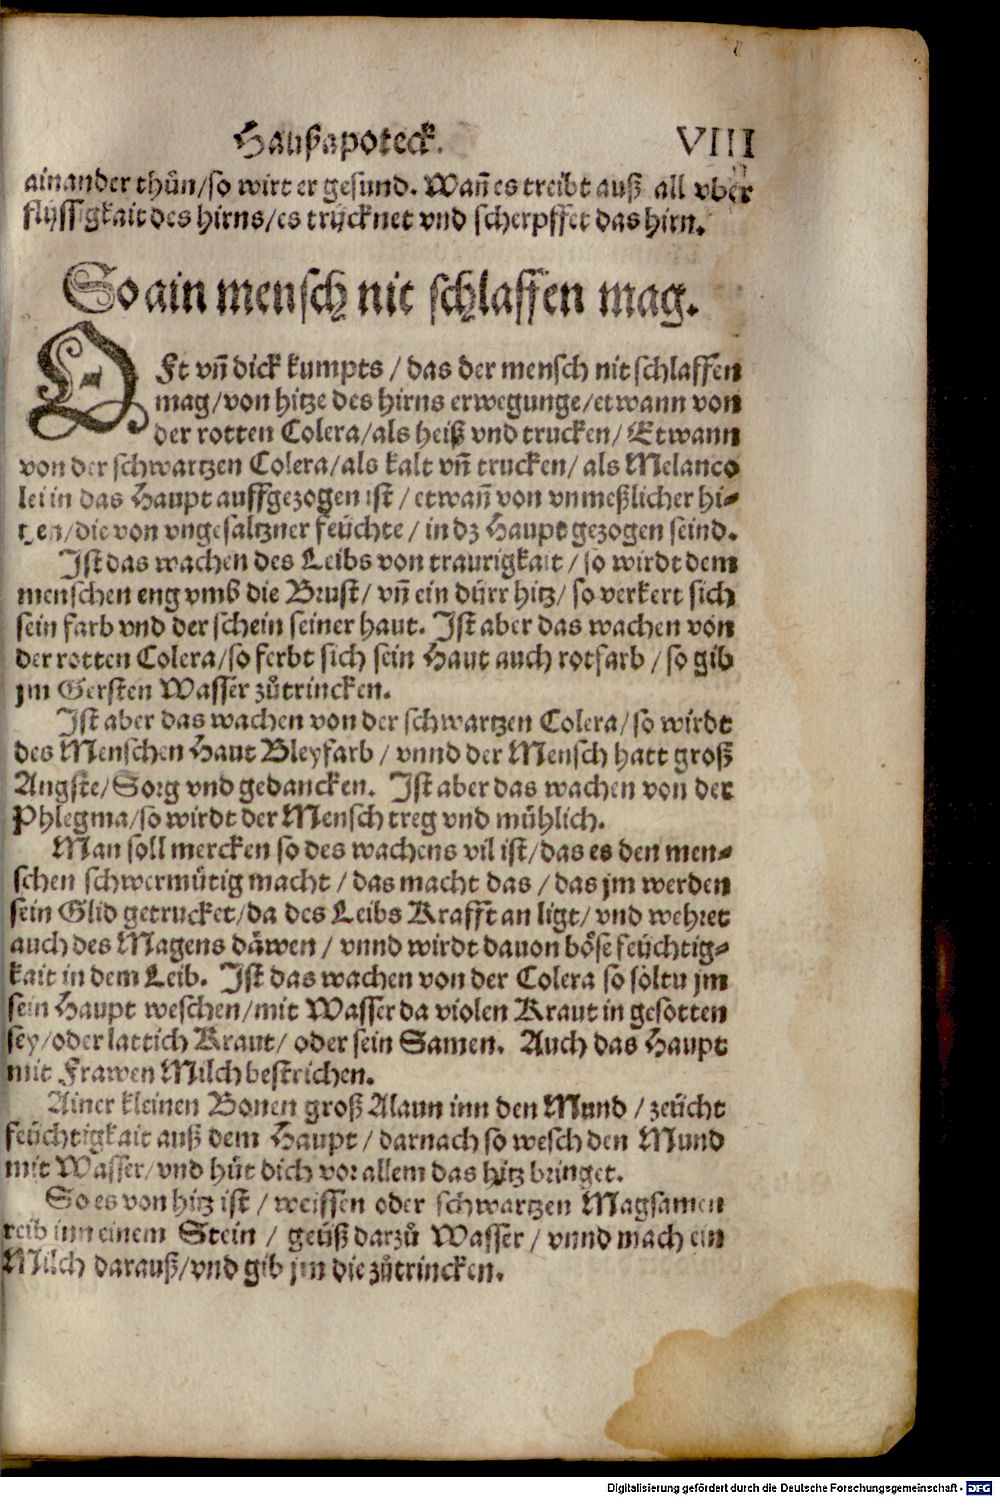 Haußapoteck. VIII
ainander thůn/so wirt er gesund. Wañ es treibt auß all vber
flyssigkait des hirns/es trücknet vnd scherpffet das hirn.
So ain mensch nit schlaffen mag.
OFt vñ dick kumpts / das der mensch nit schlaffen
mag/von hitze des hirns erwegunge/etwann von
der rotten Colera/als heiß vnd trucken/ Etwann
von der schwartzen Colera/als kalt vñ trucken/ als Melanco
lei in das Haupt auffgezogen ist / etwañ von vnmeßlicher hi-
tzen/die von vngesaltzner feüchte / in dz Haupt gezogen seind.
Ist das wachen des Leibs von traurigkait / so wirdt dem
menschen eng vmb die Brust/ vñ ein dürr hitz/ so verkert sich
sein farb vnd der schein seiner haut. Ist aber das wachen von
der rotten Colera/so ferbt sich sein Haut auch rotfarb / so gib
jm Gersten Wasser zůtrincken.
Ist aber das wachen von der schwartzen Colera/so wirdt
des Menschen Haut Bleyfarb / vnnd der Mensch hatt groß
Angste/Sorg vnd gedancken. Ist aber das wachen von der
Phlegma/so wirdt der Mensch treg vnd mühlich.
Man soll mercken so des wachens vil ist/das es den men-
schen schwermütig macht / das macht das / das jm werden
sein Glid getrucket/da des Leibs Krafft an ligt/ vnd wehret
auch des Magens däwen / vnnd wirdt dauon böse feüchtig-
kait in dem Leib. Ist das wachen von der Colera so soltu jm
sein Haupt weschen/mit Wasser da violen Kraut in gesotten
sey/oder lattich Kraut/ oder sein Samen. Auch das Haupt
mit Frawen Milch bestrichen.
Ainer kleinen Bonen groß Alaun inn den Mund / zeücht
feüchtigkait auß dem Haupt / darnach so wesch den Mund
mit Wasser/vnd hüt dich vor allem das hitz bringet.
So es von hitz ist / weissen oder schwartzen Magsamen
reib inn einem Stein / geüß darzů Wasser / vnnd mach ein
Milch darauß/vnd gib jm die zůtrincken.
Digitalisierung gefördert durch die Deutsche Forschungsgemeinschaft - DFG